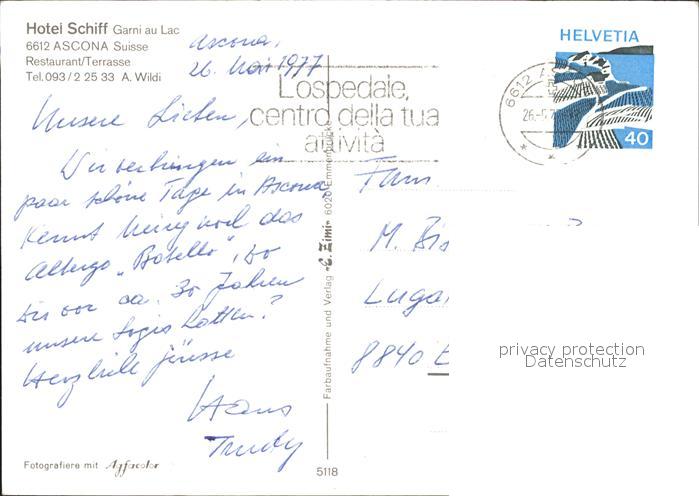 Hotel Schiff Garni au Lac
6612 ASCONA Suisse
Restaurant/Terrasse
Tel. 093/2 25 33 A. Wildi
Ascona,
26. Mai 1977
Unsere Lieben,
Wir verbringen ein
paar schöne Tage in Ascona
Kennt noch das
Albergo „Battello“, wo
wir vor ca. 30 Jahren
unsere Logis hatten?
Herzliche Grüsse
Hans
Trudy
Fotografiere mit Agfacolor
L'ospedale,
centro della tua
attività
Farbaufnahme und Verlag «E. Zimi» 6020 Emmenbrücke
5118
HELVETIA
40
6612 A
26.-5.7
Fam.
M. Bis
Luga
8840 E
privacy protection
Datenschutz